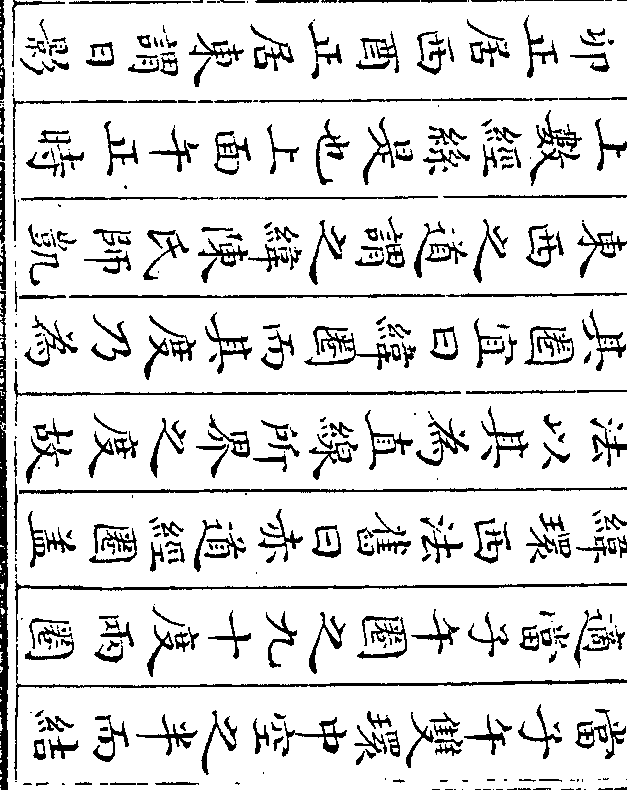 當子午雙環中空之半而結
適當子午圈之九十度兩圈
緯環西法舊曰赤道經圈蓋
法以其為直線所界之度故
其圈宜曰緯圈而其度乃為
東西之道謂之緯陳氏師凱
上數經是也上面午正時
卯正居西酉正居東謂日影